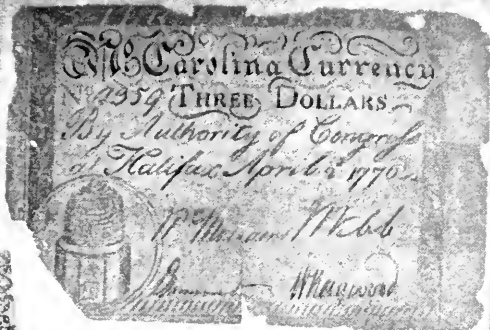 Nº Carolina Currency
Nº 2359 THREE DOLLARS
By Authority of Congress
at Halifax April 2ᵈ 1776
Wᵐ Williams J Webb
W Haywood